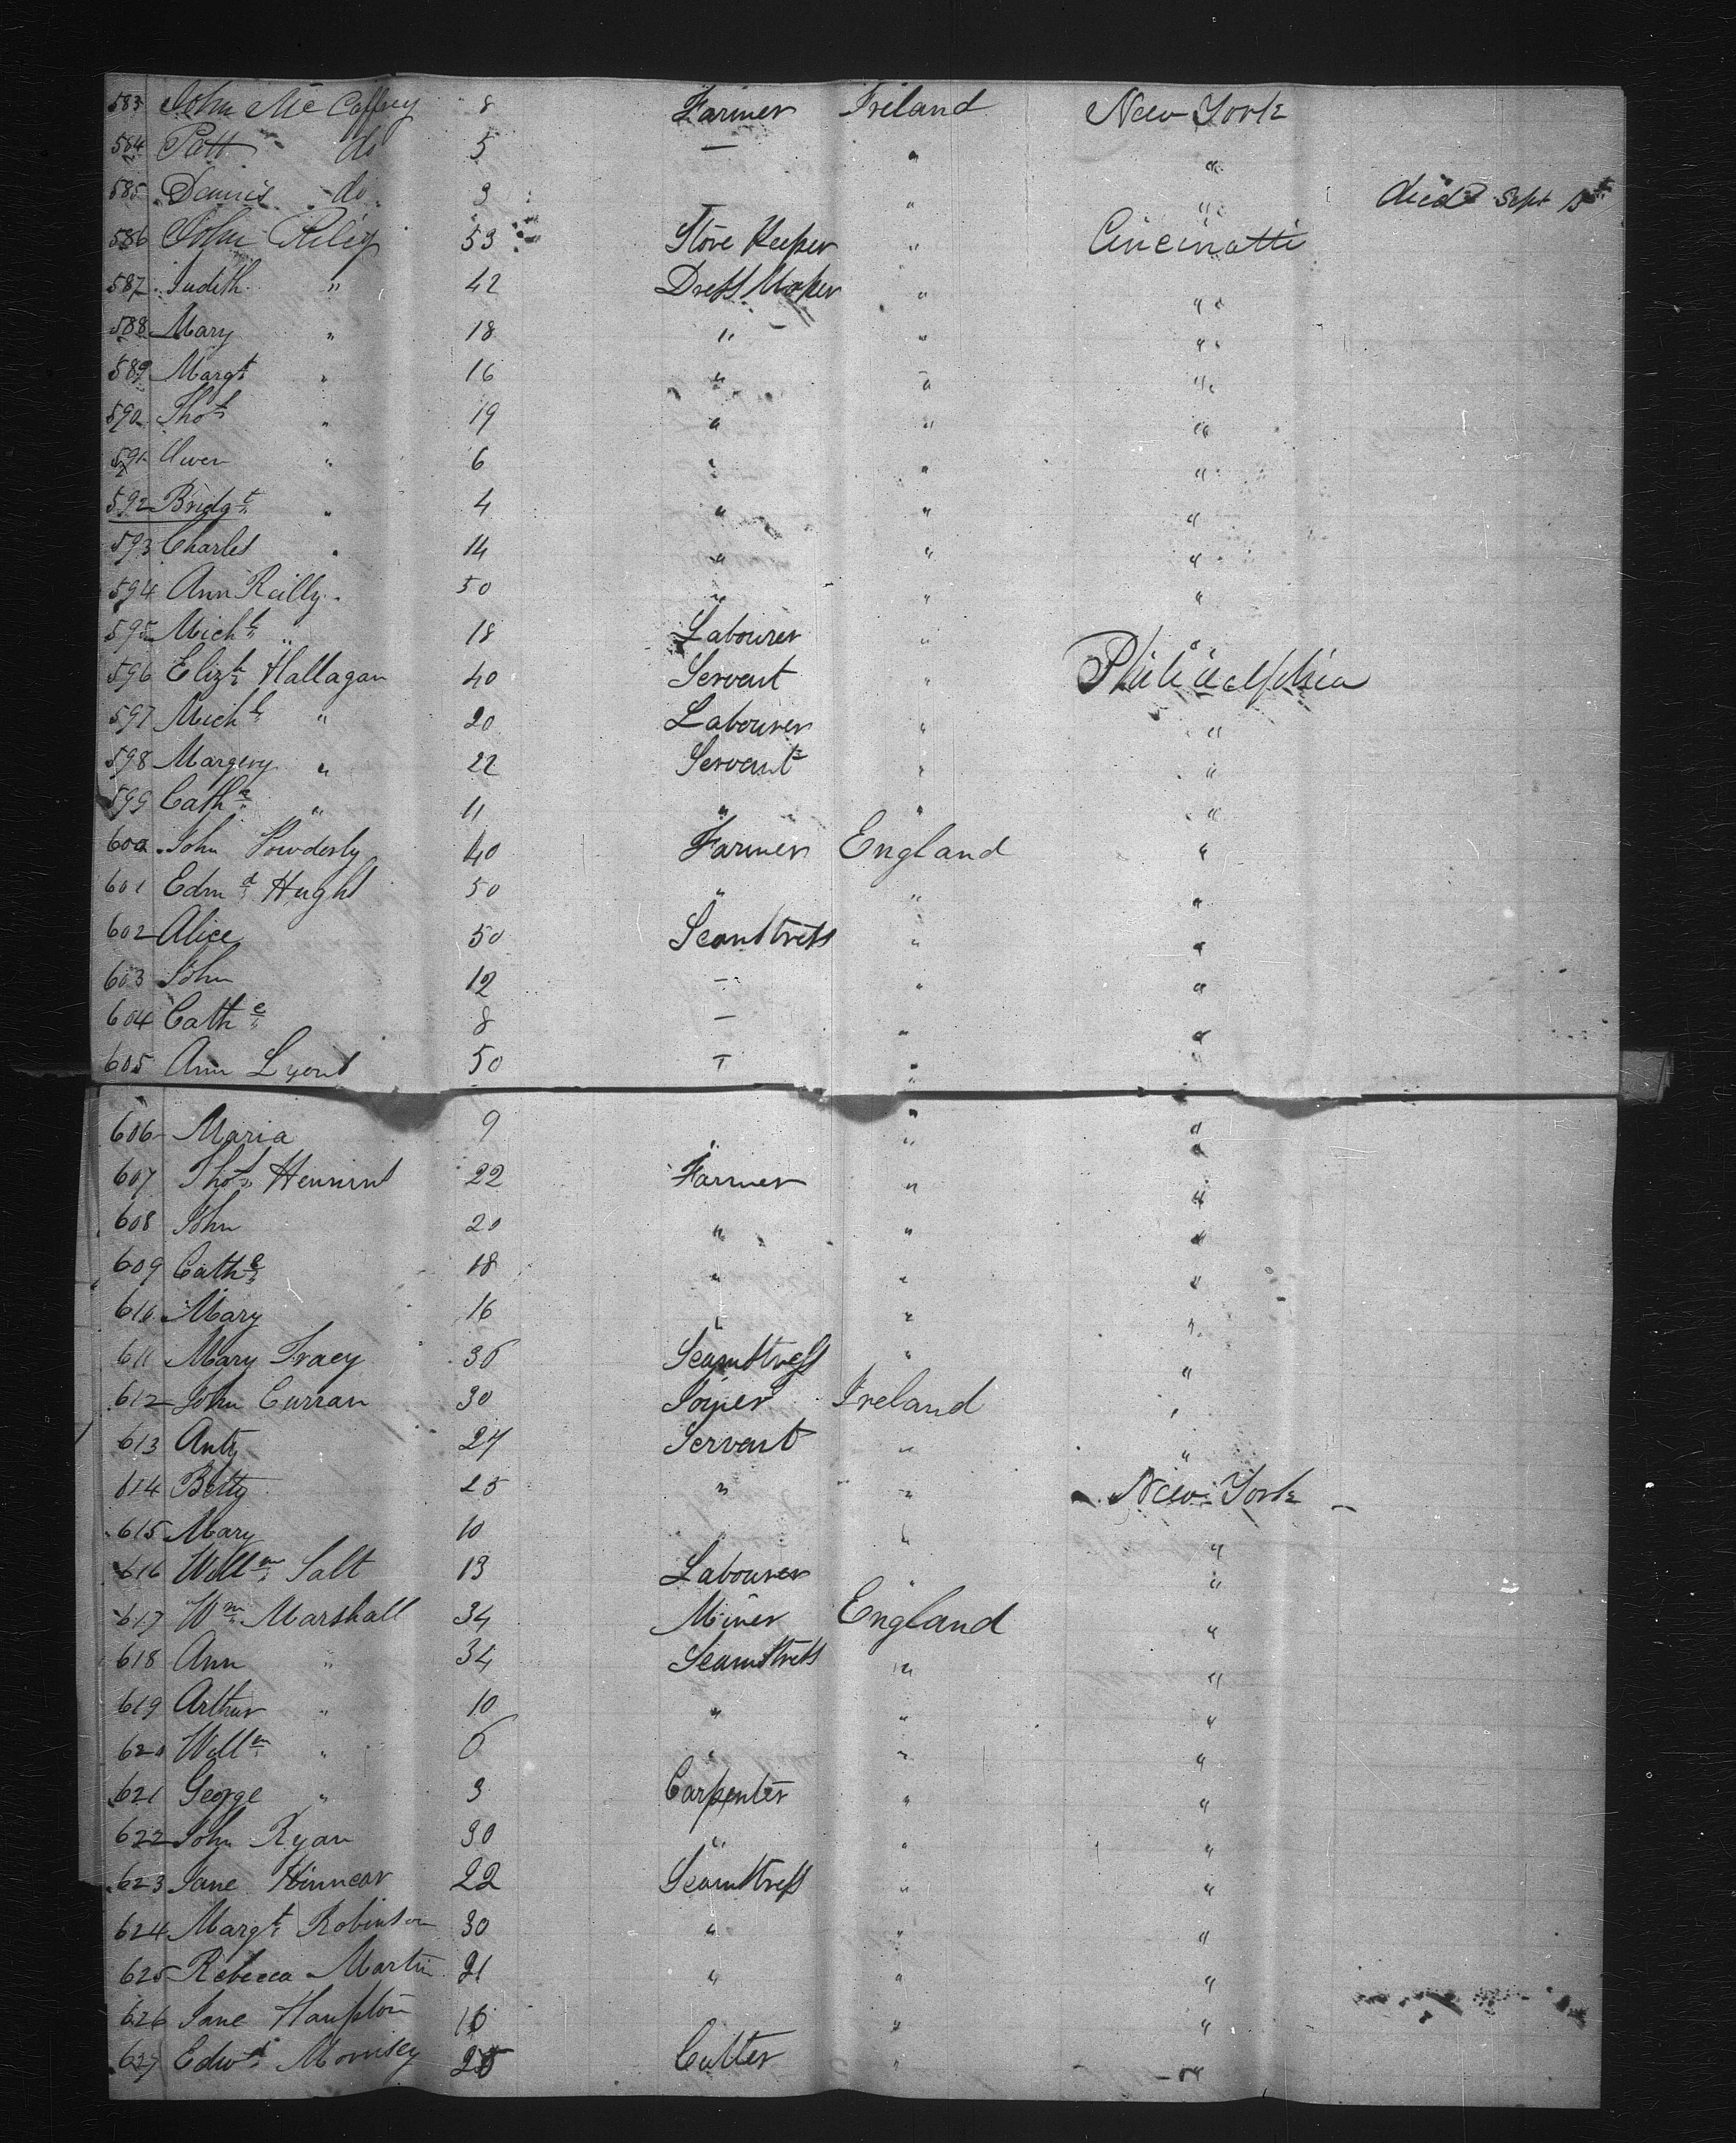 583 John McCaffrey 8 Farmer Ireland New York
584 Patt do 5 — " "
585 Dennis do 3 " " died Sept 15th
586 John Riley 53 Store Keeper " Cincinatti
587 Judith " 42 Dress Maker " "
588 Mary " 18 " " "
589 Margt " 16 " " "
590 Thos " 19 " " "
591 Owen " 6 " " "
592 Bridgt " 4 " " "
593 Charles " 14 " " "
594 Ann Reilly 50 " " "
595 Michl " 18 Labourer " "
596 Elizth Hallagan 40 Servant " Philadelphia
597 Michl " 20 Labourer " "
598 Margery " 22 Servant " "
599 Cathe " 11 " " "
600 John Powderly 40 Farmer England "
601 Edmd Hughs 50 " " "
602 Alice 50 Seamstress " "
603 John 12 — " "
604 Cathe 8 — " "
605 Ann Lyons 50 — " "
606 Maria 9 " " "
607 Thos 22 Farmer " "
608 John 20 " " "
609 Cathe 18 " " "
610 Mary 16 " " "
611 Mary Tracy 36 Seamstress " "
612 John Curran 30 Joiner Ireland "
613 Anty 27 Servant " "
614 Betty 25 " " New York
615 Mary 10 " "
616 Willm Salt 13 Labourer " "
617 Wm Marshall 34 Miner England "
618 Ann " 34 Seamstress " "
619 Arthur " 10 " " "
620 Willm " 6 " " "
621 George " 3 Carpenter " "
622 John Ryan 30 " " "
623 Jane Kinnear 22 Seamstress " "
624 Margt Robinson 30 " " "
625 Rebecca Martin 21 " " "
626 Jane 16 " "
627 Edwd Morrisey 25 Cutter " "